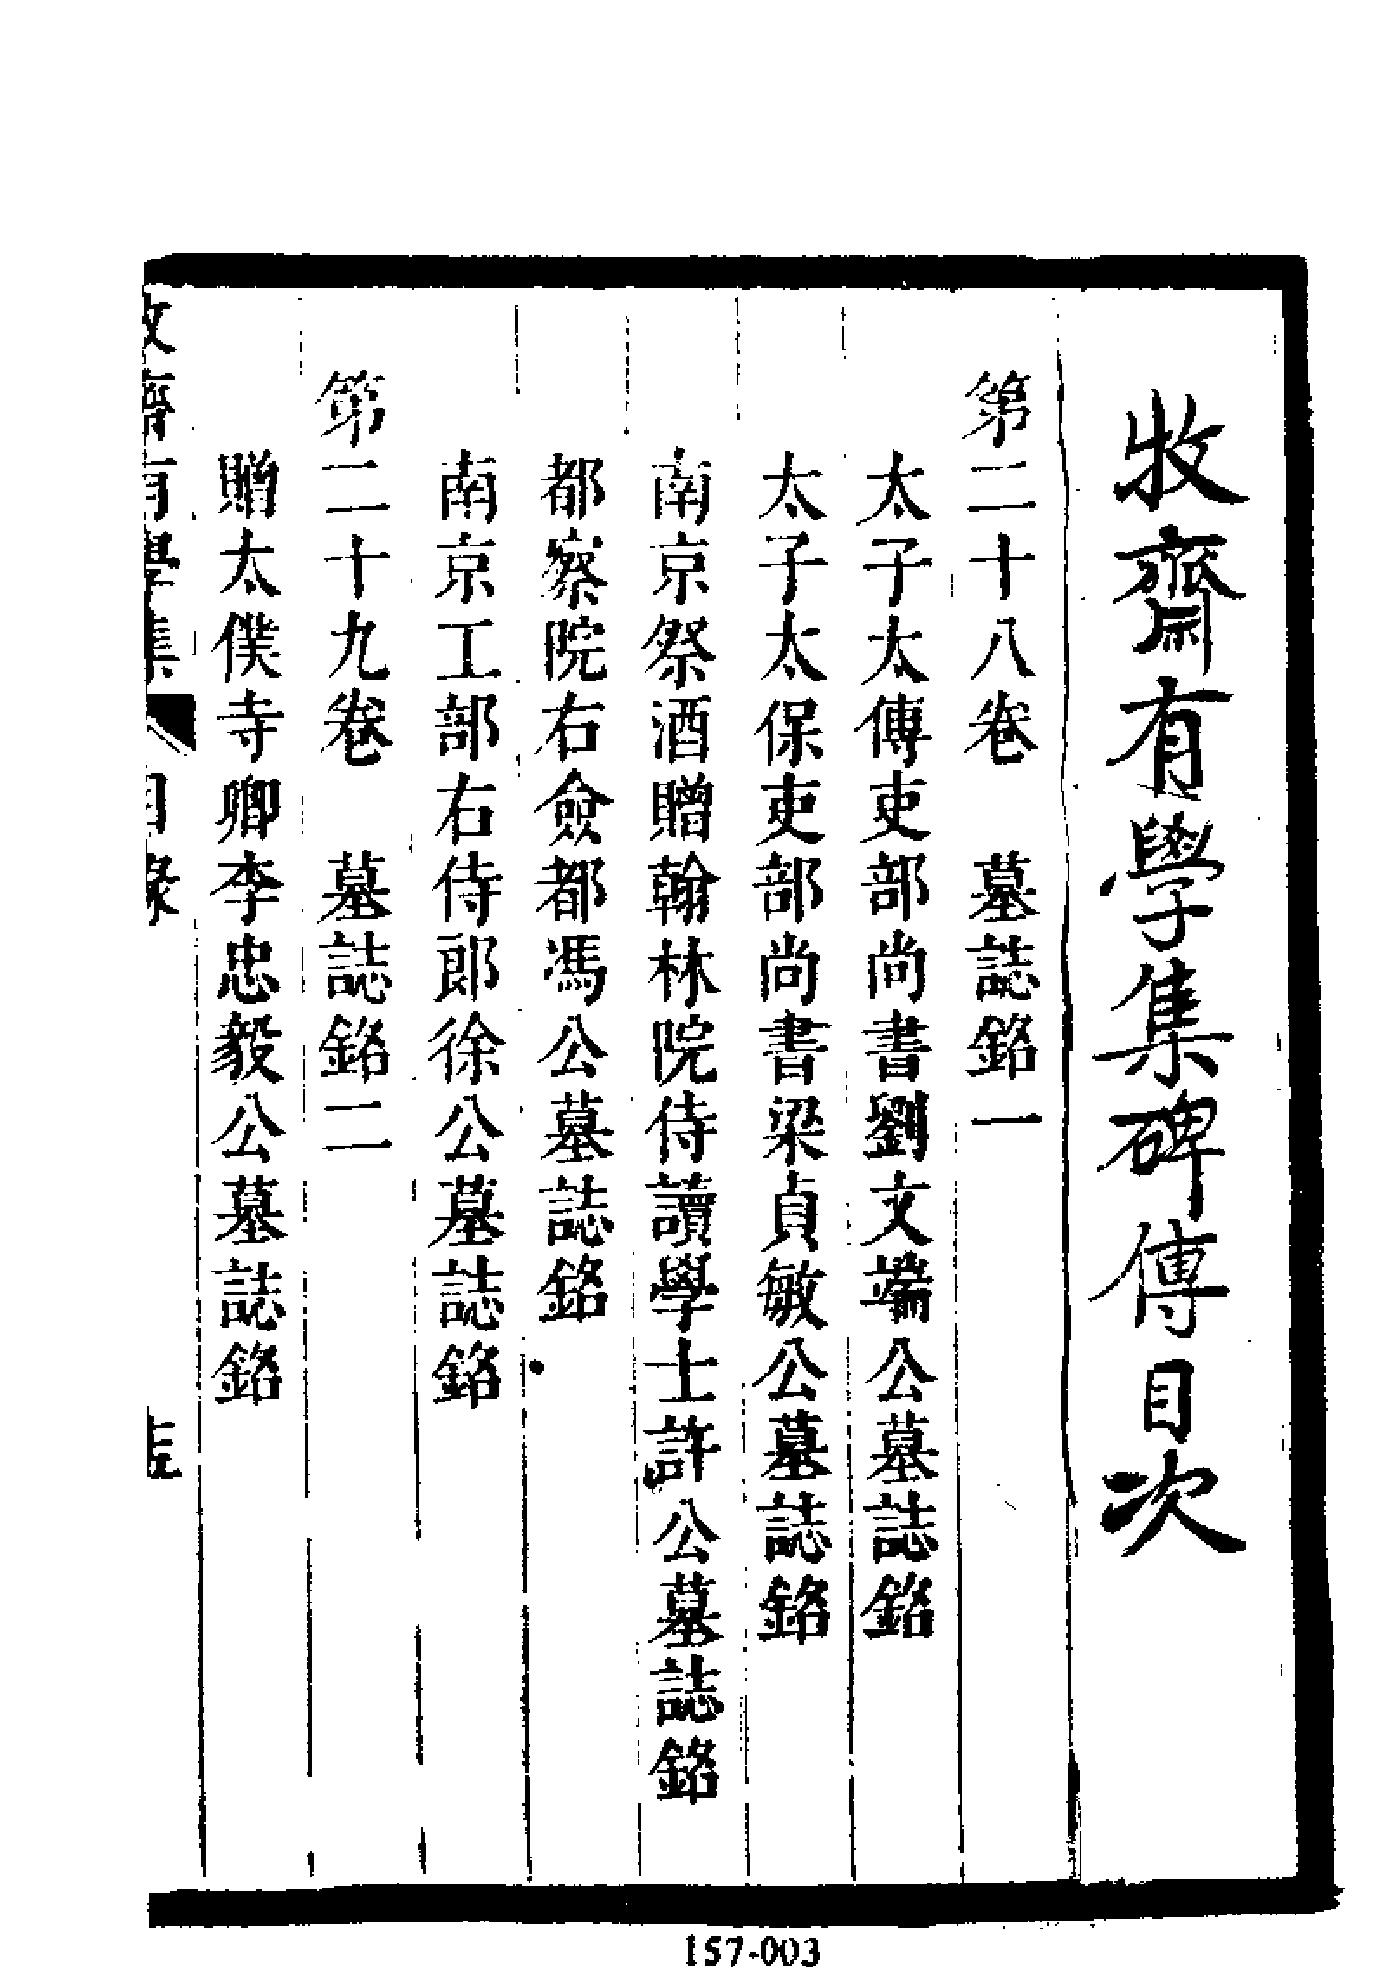 牧齋有學集碑傳目次
第二十八卷　墓誌銘一
太子太傅吏部尚書劉文端公墓誌銘
太子太保吏部尚書梁貞敏公墓誌銘
南京祭酒贈翰林院侍讀學士許公墓誌銘
都察院右僉都馮公墓誌銘
南京工部右侍郎徐公墓誌銘
第二十九卷　墓誌銘二
贈太僕寺卿李忠毅公墓誌銘
牧齋有學集　目錄
157-003